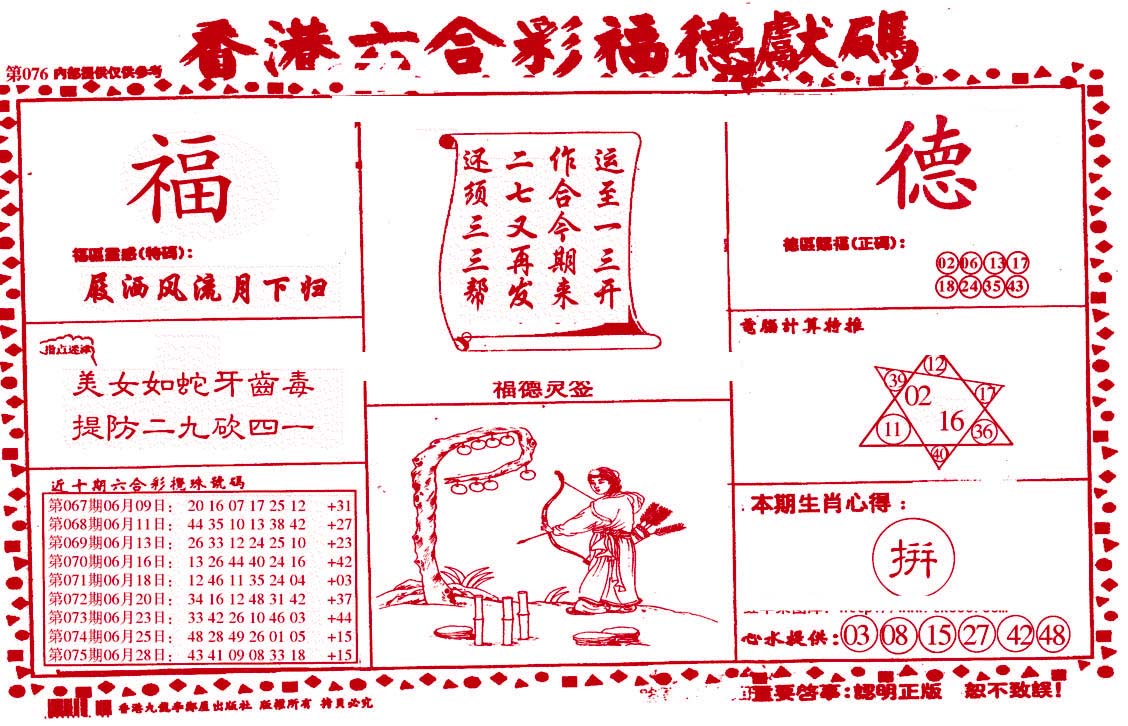 香港六合彩福德獻碼
第076 內部提供仅供参考
福
福區靈感(特碼):
屐洒风流月下归
指点迷津
美女如蛇牙齒毒
提防二九砍四一
近十期六合彩攪珠號碼
第067期06月09日: 20 16 07 17 25 12 +31
第068期06月11日: 44 35 10 13 38 42 +27
第069期06月13日: 26 33 12 24 25 10 +23
第070期06月16日: 13 26 44 40 24 16 +42
第071期06月18日: 12 46 11 35 24 04 +03
第072期06月20日: 34 16 12 48 31 42 +37
第073期06月23日: 33 42 26 10 46 03 +44
第074期06月25日: 48 28 49 26 01 05 +15
第075期06月28日: 43 41 09 08 33 18 +15
运至一三开
作合今期来
二七又再发
还须三三帮
福德灵签
德
德區賜福(正碼):
02 06 13 17
18 24 35 43
電腦計算特推
12
39 02 17
11 16 36
40
本期生肖心得:
拼
心水提供: 03 08 15 27 42 48
重要啓事:認明正版 恕不致誤!
版權所有 拷貝必究